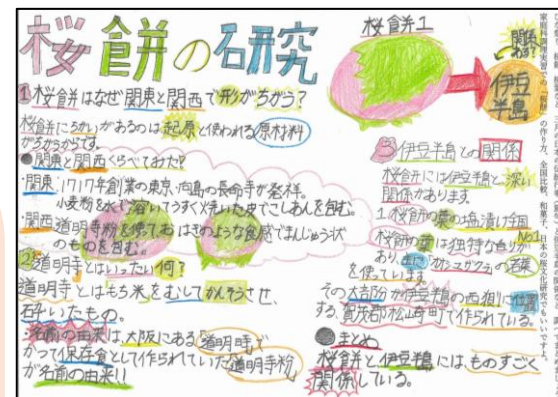 桜餅の研究
1 桜餅はなぜ関東と関西で形がちがう？
桜餅にちがいがあるのは起原と使われる原材料
がちがうからです。
●関東と関西くらべてみた!?
・関東:1717年創業の東京・向島の長命寺が発祥。
小麦粉を水で溶いてうすく焼いた皮でこしあんを包む。
・関西 道明寺粉を使ておはぎのような食感でまんじゅう状
のものを包む。
2 道明寺とはいったい何？
道明寺とはもち米をむしてかんそうさせ、
石干いたもの。
・名前の由来は、大阪にある「道明寺」で
かつて保存食として作られていた道明寺粉
が名前の由来!!
桜餅1
関係
ある?
伊豆
半島
3 伊豆半島との関係
桜餅には伊豆半島と深い
関係があります。
1 桜餅の葉の塩漬け全国
No.1
桜餅の葉は独特な香りが
あり、主にオオシマザクラの若葉
を使っています
その大部分が伊豆半島の西側に位置
する、賀茂郡松崎町で作られている。
●まとめ
桜餅と伊豆半島には、ものすごく
関係している。
家庭科調理実習での「桜餅」の作り方、全国比較、和菓子、日本の桜文化研究でもいいですよ。